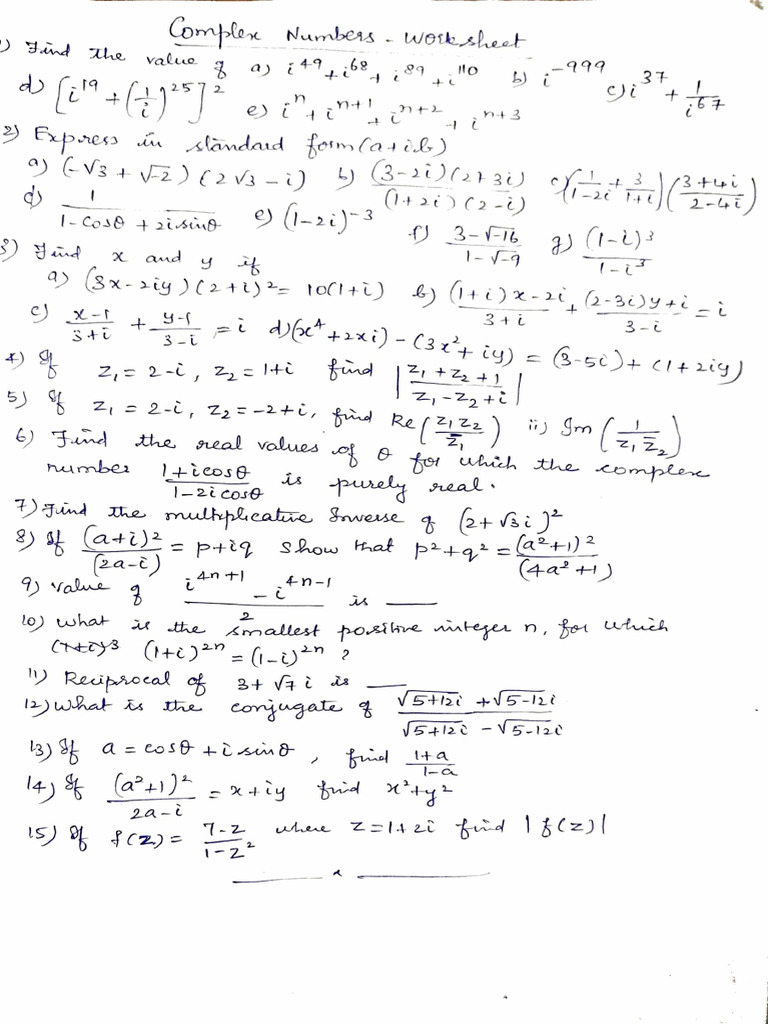 Complex Numbers - Worksheet
1) Find the value of a) i⁴⁹ + i⁶⁸ + i⁸⁹ + i¹¹⁰ b) i⁻⁹⁹⁹ c) i³⁷ + 1/i⁶⁷
d) [i¹⁹ + (1/i)²⁵]² e) iⁿ + iⁿ⁺¹ + iⁿ⁺² + iⁿ⁺³
2) Express in standard form (a+ib)
a) (-√3 + √-2) (2√3 - i) b) (3-2i)(2+3i)/(1+2i)(2-i) c) (1/1-2i + 3/1+i)(3+4i/2-4i)
d) 1/1-cosθ + 2i sinθ e) (1-2i)⁻³ f) 3-√-16/1-√-9 g) (1-i)³/1-i³
3) Find x and y if
a) (3x-2iy)(2+i)² = 10(1+i) b) (1+i)x-2i/3+i + (2-3i)y+i/3-i = i
c) x-1/3+i + y-1/3-i = i d) (x⁴+2xi) - (3x²+iy) = (3-5i) + (1+2iy)
4) If z₁ = 2-i, z₂ = 1+i find |z₁+z₂+1/z₁-z₂+i|
5) If z₁ = 2-i, z₂ = -2+i, find Re(z₁z₂/z̄₁) ii) Im(1/z₁z̄₂)
6) Find the real values of θ for which the complex
number 1+icosθ/1-2icosθ is purely real.
7) Find the multiplicative Inverse of (2+√3i)²
8) If (a+i)²/(2a-i) = p+iq show that p²+q² = (a²+1)²/(4a²+1)
9) value of i⁴ⁿ⁺¹ - i⁴ⁿ⁻¹/2 is ___
10) What is the smallest positive integer n, for which
(1+i)³ (1+i)²ⁿ = (1-i)²ⁿ ?
11) Reciprocal of 3+√7i is ___
12) What is the conjugate of √5+12i + √5-12i/√5+12i - √5-12i
13) If a = cosθ + i sinθ, find 1+a/1-a
14) If (a²+1)²/2a-i = x+iy find x²+y²
15) If f(z) = 7-z/1-z² where z = 1+2i find |f(z)|